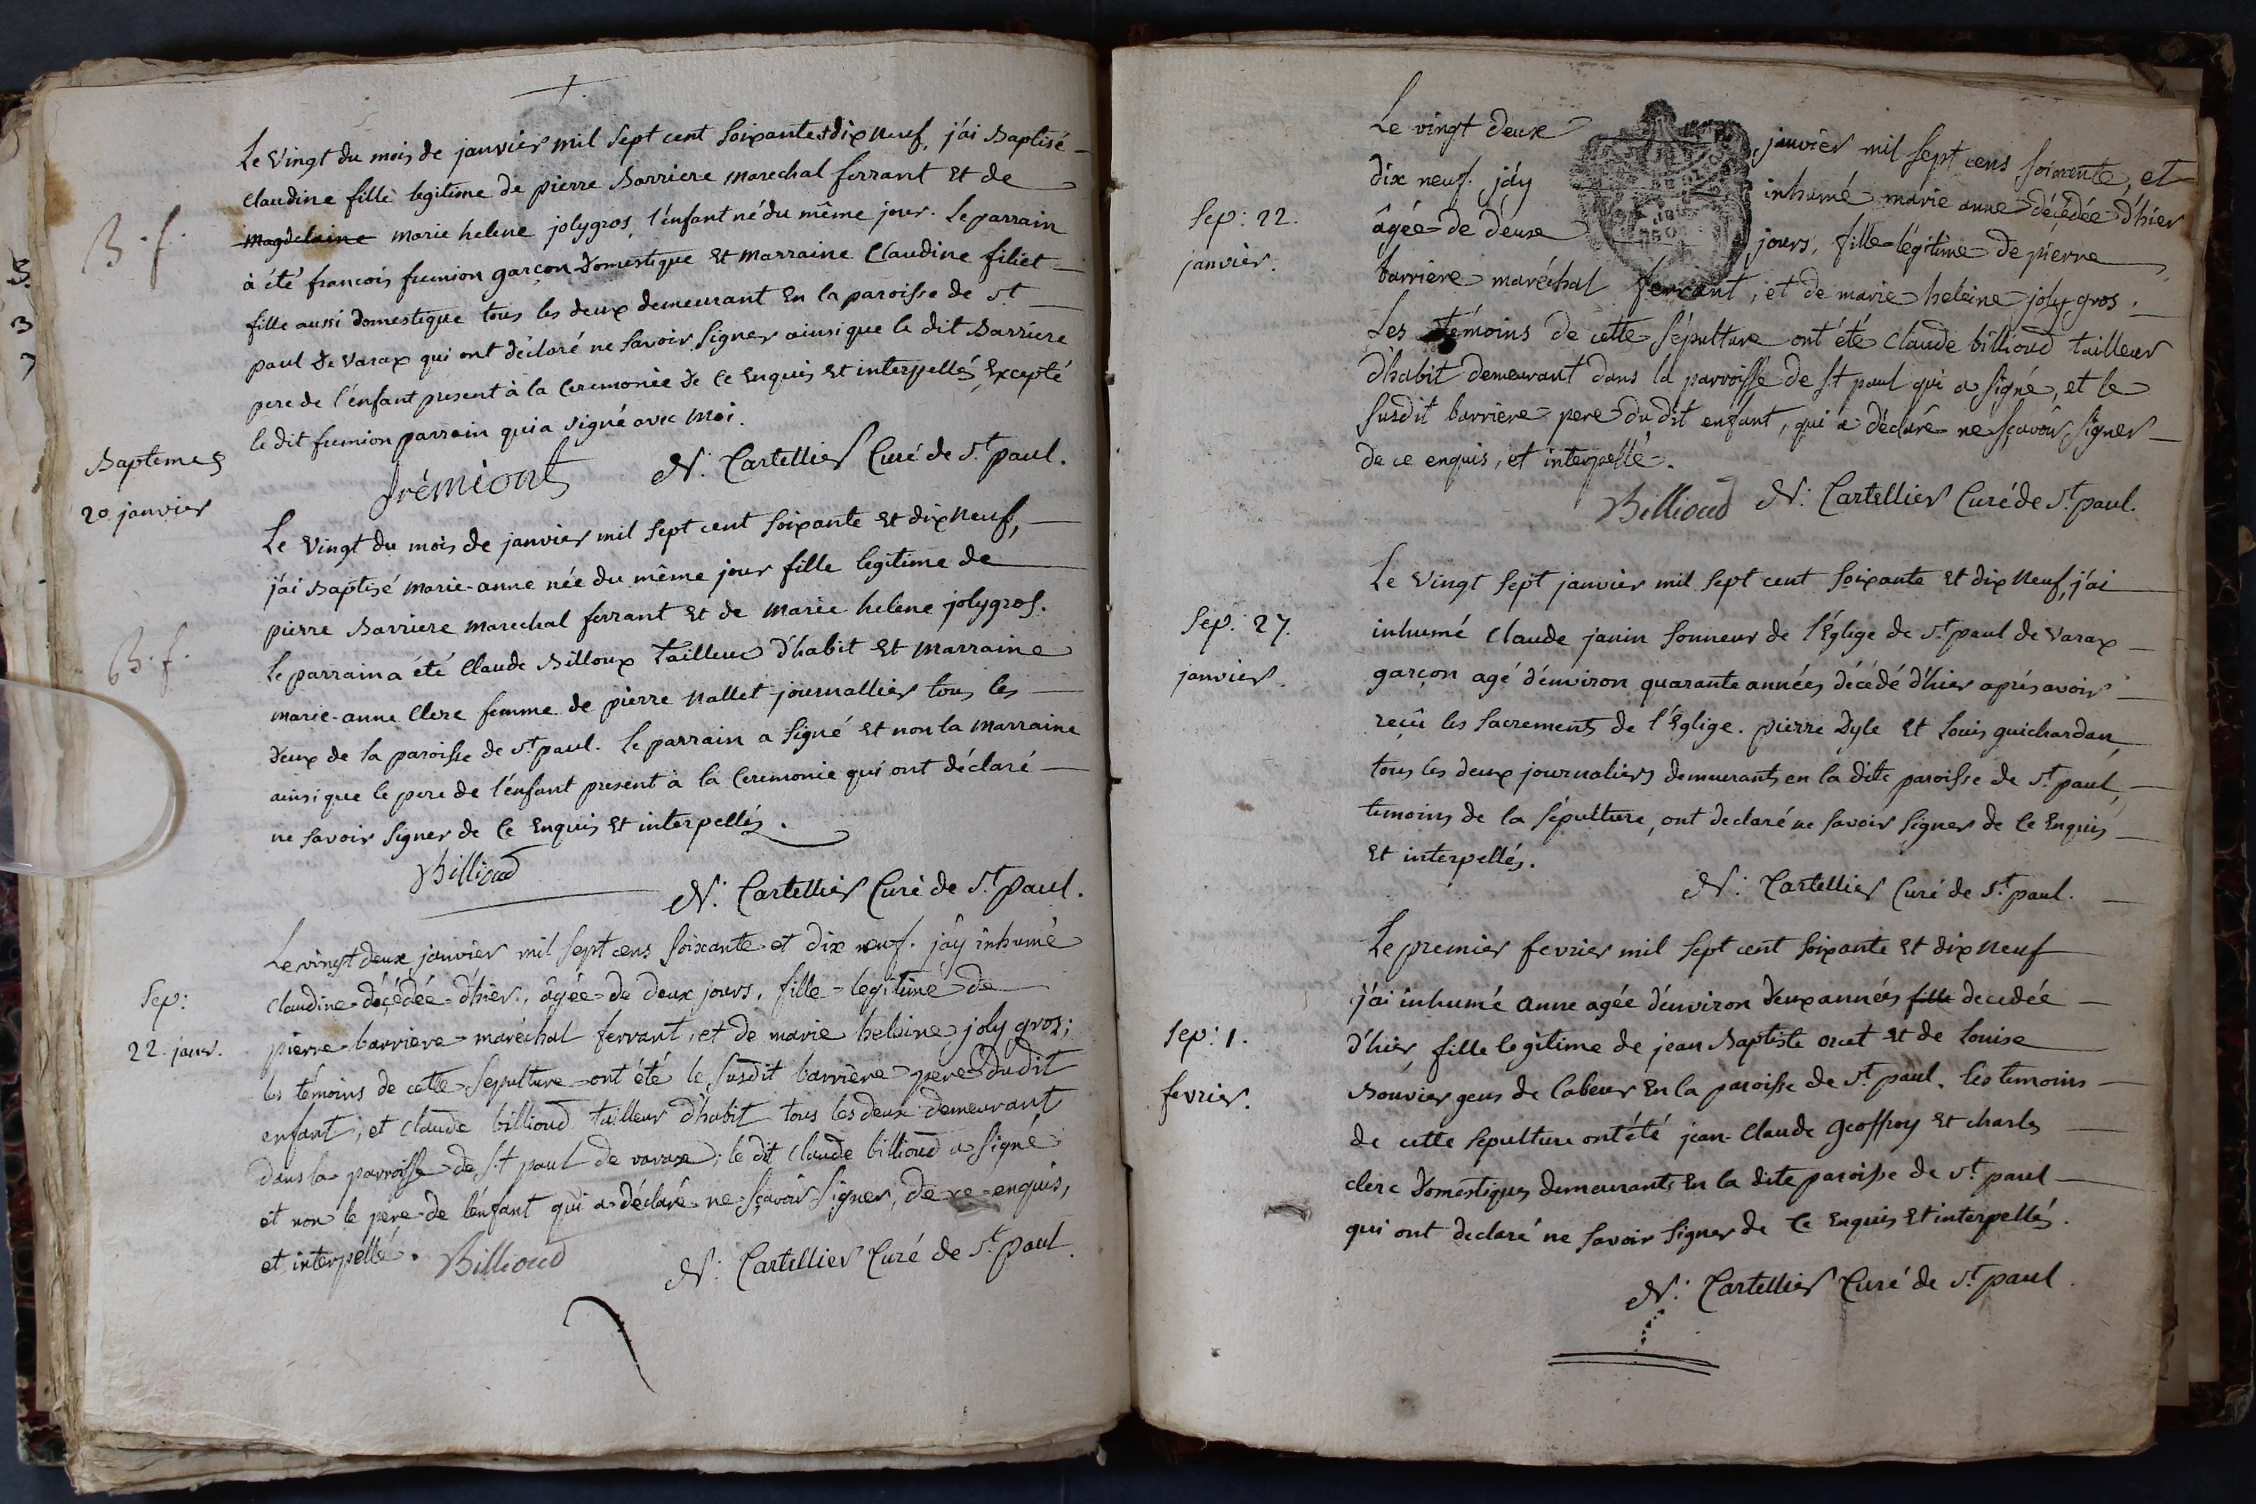 Le Vingt du mois de janvier mil sept cent soixante et dix neuf, j'ai Baptisé
Claudine fille legitime de pierre Barriere marechal ferrant et de
magdelaine marie helene jolygros, l'enfant né du même jour. Le parrain
B. f.
à été francois fremion garçon domestique et marraine Claudine filiet
fille aussi domestique tous les deux demeurant en la paroisse de St
paul de varax qui ont déclaré ne savoir signer ainsi que le dit Barriere
pere de l'enfant present à la Ceremonie de Ce enquis et interpellés, excepté
le dit fremion parrain qui a signé avec moi.
Baptemes
20 janvier
frémiont N. Cartellier Curé de St. paul.
Le Vingt du mois de janvier mil sept cent soixante et dix neuf,
j'ai Baptisé marie-anne née du même jour fille legitime de
pierre Barriere marechal ferrant et de marie helene jolygros.
B. f.
le parrain a été Claude Billoux tailleur d'habit et marraine
marie-anne Clerc femme de pierre nallet journallier tous les
deux de la paroisse de St. paul. le parrain a signé et non la marraine
ainsi que le pere de l'enfant present à la Ceremonie qui ont déclaré
ne savoir signer de Ce enquis et interpellés.
Billioud
N. Cartellier Curé de St. paul.
Le vingt deux janvier mil sept cens soixante et dix neuf. j'ay inhumé
Sep:
22 janv.
claudine décédée d'hier, âgée de deux jours, fille legitime de
pierre barriere maréchal ferrant, et de marie heleine joly gros;
les témoins de cette sepulture ont été le susdit barriere pere du dit
enfant, et claude billioud tailleur d'habit tous les deux demeurant
dans la parroisse de St paul de varax; le dit claude billioud a signé
et non le pere de l'enfant qui a déclaré ne sçavoir signer, de ce enquis,
et interpellé. Billioud N. Cartellier Curé de St. paul.
Le vingt deux janvier mil sept cens soixante, et
dix neuf. j'ay inhumé marie anne décédée d'hier
Sep: 22.
janvier.
âgée de deux jours, fille légitime de pierre
barriere maréchal ferrant, et de marie heleine joly gros.
Les témoins de cette sépulture ont été claude billioud tailleur
d'habit demeurant dans la parroisse de St paul qui a signé, et le
susdit barriere pere du dit enfant, qui a déclaré ne sçavoir signer
de ce enquis, et interpellé.
Billioud N. Cartellier Curé de St. paul.
Le Vingt sept janvier mil sept cent soixante et dix neuf, j'ai
Sep: 27.
janvier.
inhumé Claude janin sonneur de l'Églige de St. paul de varax
garçon agé d'environ quarante années décédé d'hier après avoir
reçû les sacrements de l'Églige. pierre Dyle et louis guichardan,
tous les deux journaliers demeurants en la dite paroisse de St. paul,
temoins de la sépulture, ont declaré ne savoir signer de Ce enquis
et interpellés.
N. Cartellier Curé de St. paul.
Le premier fevrier mil sept cent soixante et dix neuf
j'ai inhumé anne agée d'environ deux années fille decedée
Sep: 1.
fevrier.
d'hier, fille legitime de jean Baptiste oret et de Louise
Bouvier gens de labeur en la paroisse de St. paul. les temoins
de cette sepulture ont été jean-Claude geoffroy et charles
clerc domestiques demeurants en la dite paroisse de St. paul
qui ont declaré ne savoir signer de Ce enquis et interpellés.
N. Cartellier Curé de St. paul